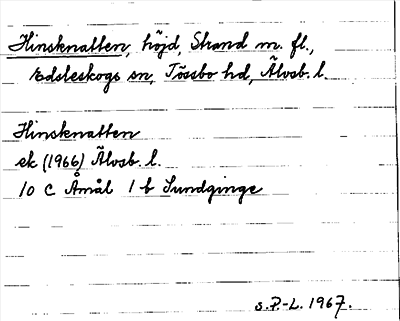 Hinsknatten, höjd, Strand m. fl.,
Edsleskogs sn, Tössbo hd, Älvsb. l.
Hinsknatten
ek (1966) Älvsb. l.
10 C Åmål 1 b Sundginge
s. P.-L. 1967.